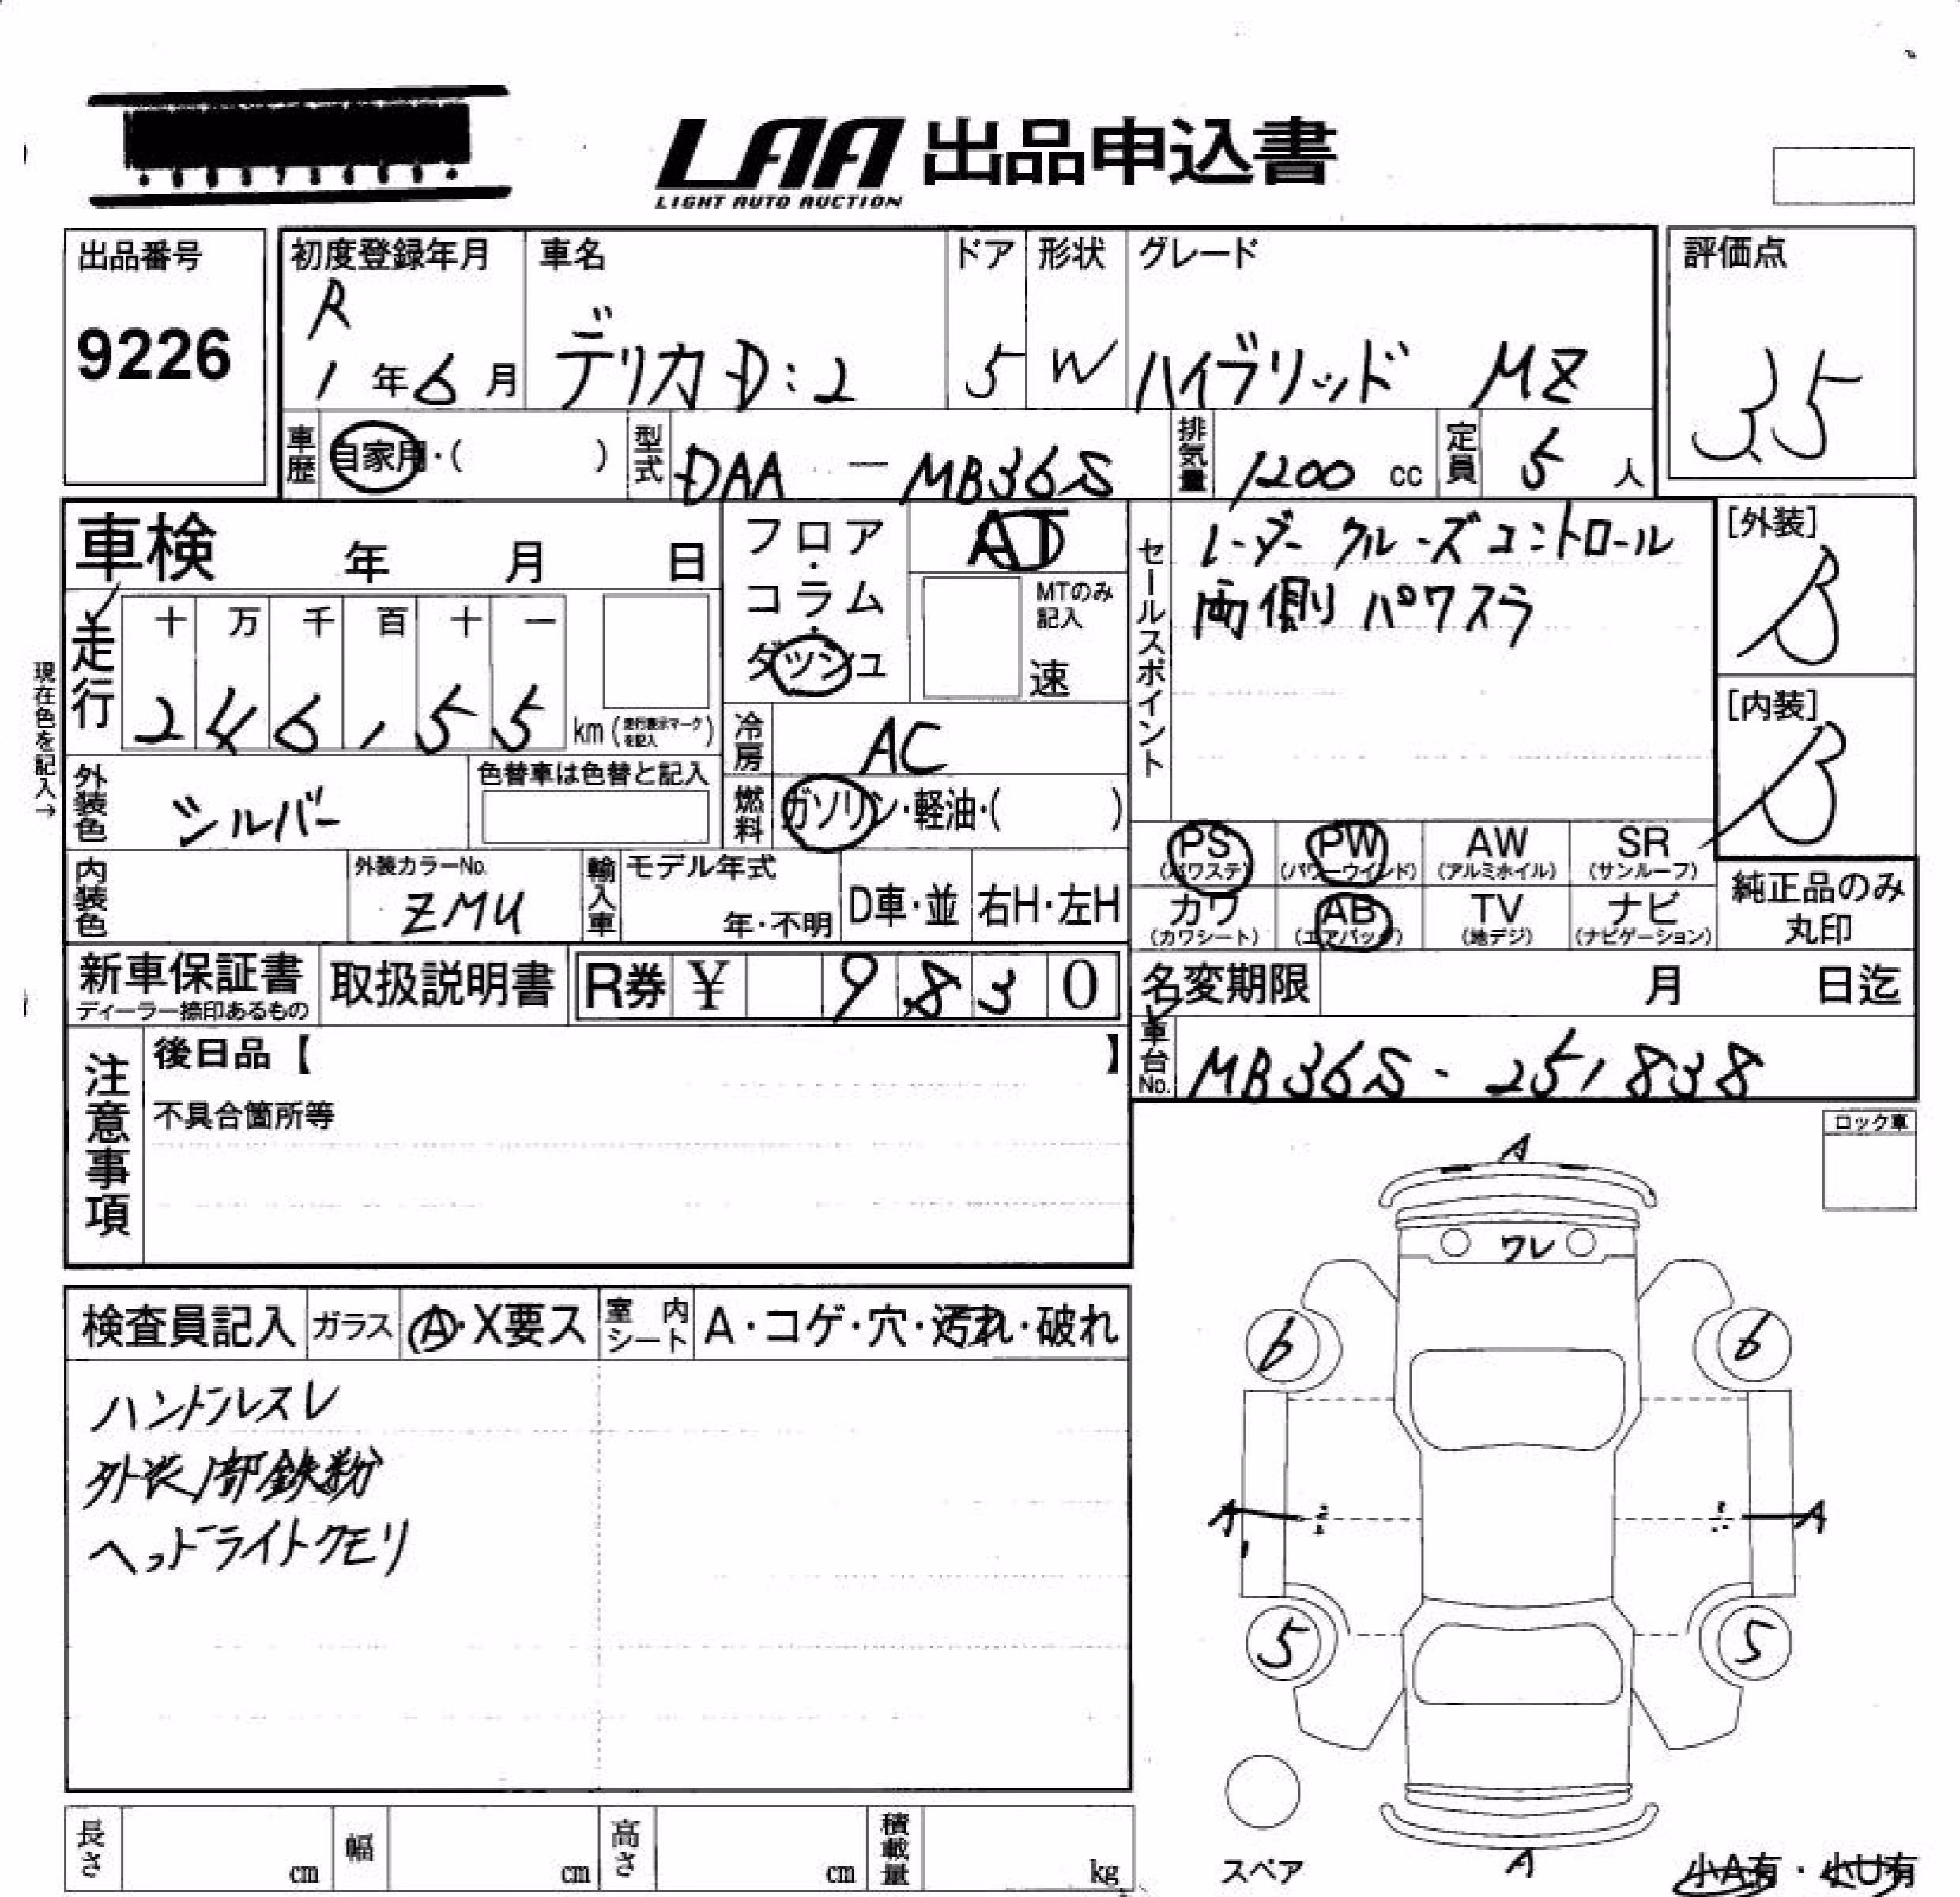 LAA 出品申込書
LIGHT AUTO AUCTION
出品番号
9226
初度登録年月
R
1 年 6 月
車名
デリカD:2
ドア
5
形状
W
グレード
ハイブリッド MZ
評価点
3.5
車歴
自家用・( )
型式
DAA - MB36S
排気量
1200 cc
定員
5 人
車検 年 月 日
フロア・コラム・ダッシュ
AT
MTのみ記入
速
セールスポイント
レーダークルーズコントロール
両側パワスラ
[外装]
B
[内装]
B
現在色を記入→
走行
十 万 千 百 十 一
2 4 6 1 5 5 km (走行表示マークを記入)
冷房
AC
外装色
シルバー
色替車は色替と記入
燃料
ガソリン・軽油・( )
PS (パワステ)
PW (パワーウインド)
AW (アルミホイル)
SR (サンルーフ)
カワ (カワシート)
AB (エアバッグ)
TV (地デジ)
ナビ (ナビゲーション)
純正品のみ丸印
内装色
外装カラーNo.
ZMU
輸入車
モデル年式
年・不明
D車・並
右H・左H
新車保証書
ディーラー捺印あるもの
取扱説明書
R券 ¥ 9 8 3 0
名変期限 月 日迄
車台No.
MB36S - 251838
注意事項
後日品【 】
不具合箇所等
ロック車
検査員記入
ガラス
A・X要ス
室内シート
A・コゲ・穴・汚れ・破れ
ハンドルスレ
外装1部鉄粉
ヘッドライトクモリ
A
ワレ
6
6
A
A
5
5
スペア
A
小A有・小U有
長さ cm
幅 cm
高さ cm
積載量 kg